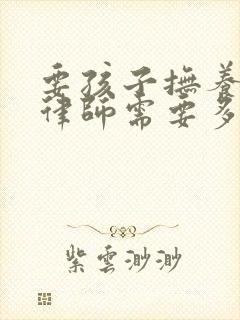 要孩子撫養
律師需要多
紫雲渺渺